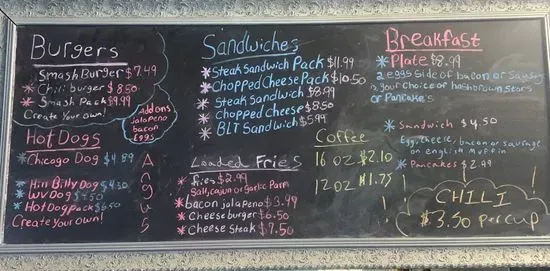 Burgers
Smash Burger $7.49
* Chili burger $8.50
* Smash Pack $9.99
Create Your own!
Add ons
jalapeno
bacon
Eggs
Hot Dogs
* Chicago Dog $4.89
* Hill Billy Dog $4.50
* WV Dog $3.50
* Hot Dog pack $6.50
Create Your own!
A
n
g
u
s
Sandwiches
* Steak Sandwich Pack $11.99
* Chopped Cheese Pack $10.50
* Steak Sandwich $8.99
* Chopped Cheese $8.50
* BLT Sandwich $5.99
Loaded Fries
* fries $2.99
Salt, cajun or Garlic Parm
* bacon jalapeno $3.99
* Cheeseburger $6.50
* Cheese Steak $7.50
Coffee
16 oz $2.10
12 oz $1.75
Breakfast
* Plate $8.99
2 eggs side of bacon or Sausage
your choice of hashbrown Stars
or Pancakes
* Sandwich $4.50
Egg, cheese, bacon or sausage
on english muffin
* Pancakes $2.99
CHILI
$3.50 per cup